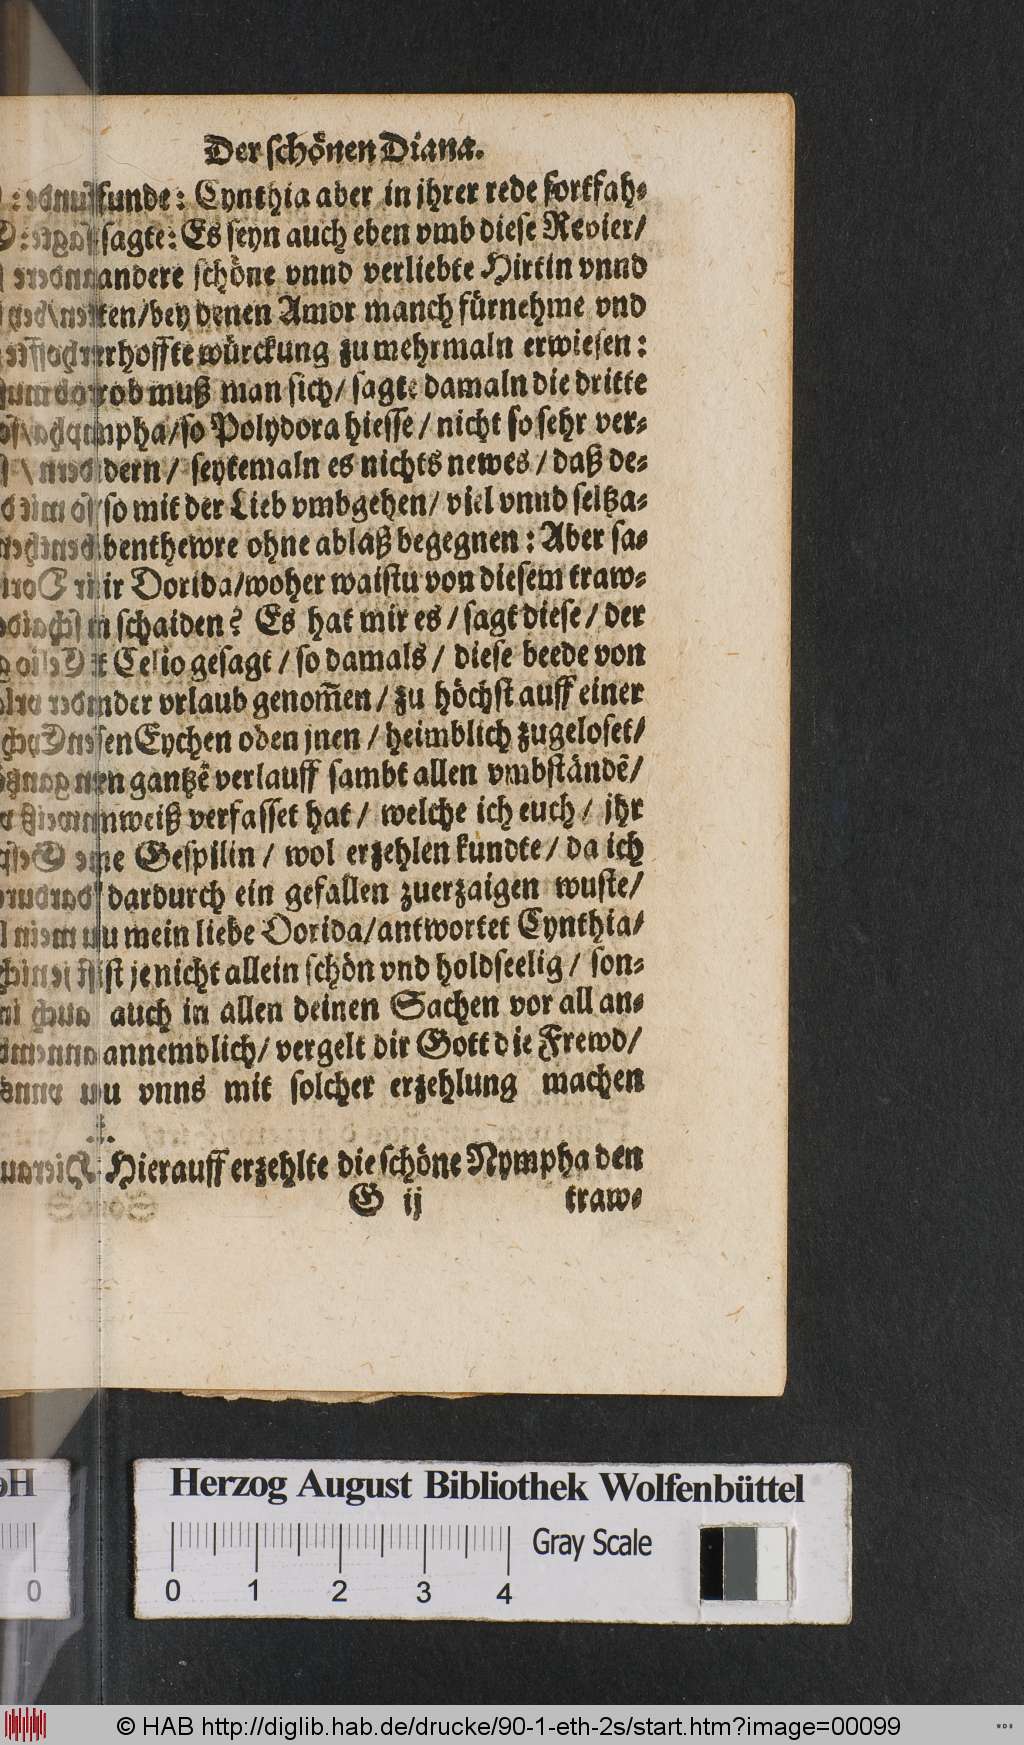 Der schönen Diana.
funde: Cynthia aber in jhrer rede fortfah-
sagte: Es seyn auch eben vmb diese Revier/
andere schöne vnnd verliebte Hirtin vnnd
ten/bey denen Amor manch fürnehme vnd
rhoffte würckung zu mehrmaln erwiesen:
rob muß man sich/ sagte damaln die dritte
mpha/so Polydora hiesse/ nicht so sehr ver-
dern/ seytemaln es nichts newes/ daß de-
so mit der Lieb vmbgehen/ viel vnnd seltza-
benthewre ohne ablaß begegnen: Aber sa-
mir Dorida/woher waistu von diesem traw-
n schaiden? Es hat mir es/ sagt diese/ der
t Celio gesagt/ so damals/ diese beede von
nder vrlaub genom̃en/ zu höchst auff einer
sen Eychen oden jnen/ heimblich zugeloset/
en gantzẽ verlauff sambt allen vmbständẽ/
nweiß verfasset hat/ welche ich euch/ jhr
ne Gespilin/ wol erzehlen kundte/ da ich
dardurch ein gefallen zuerzaigen wuste/
u mein liebe Dorida/antwortet Cynthia/
ist je nicht allein schön vnd holdseelig/ son-
auch in allen deinen Sachen vor all an-
annemblich/ vergelt dir Gott die Frewd/
u vnns mit solcher erzehlung machen
Hierauff erzehlte die schöne Nympha den
G ij traw-
Herzog August Bibliothek Wolfenbüttel
Gray Scale
0 1 2 3 4
© HAB http://diglib.hab.de/drucke/90-1-eth-2s/start.htm?image=00099